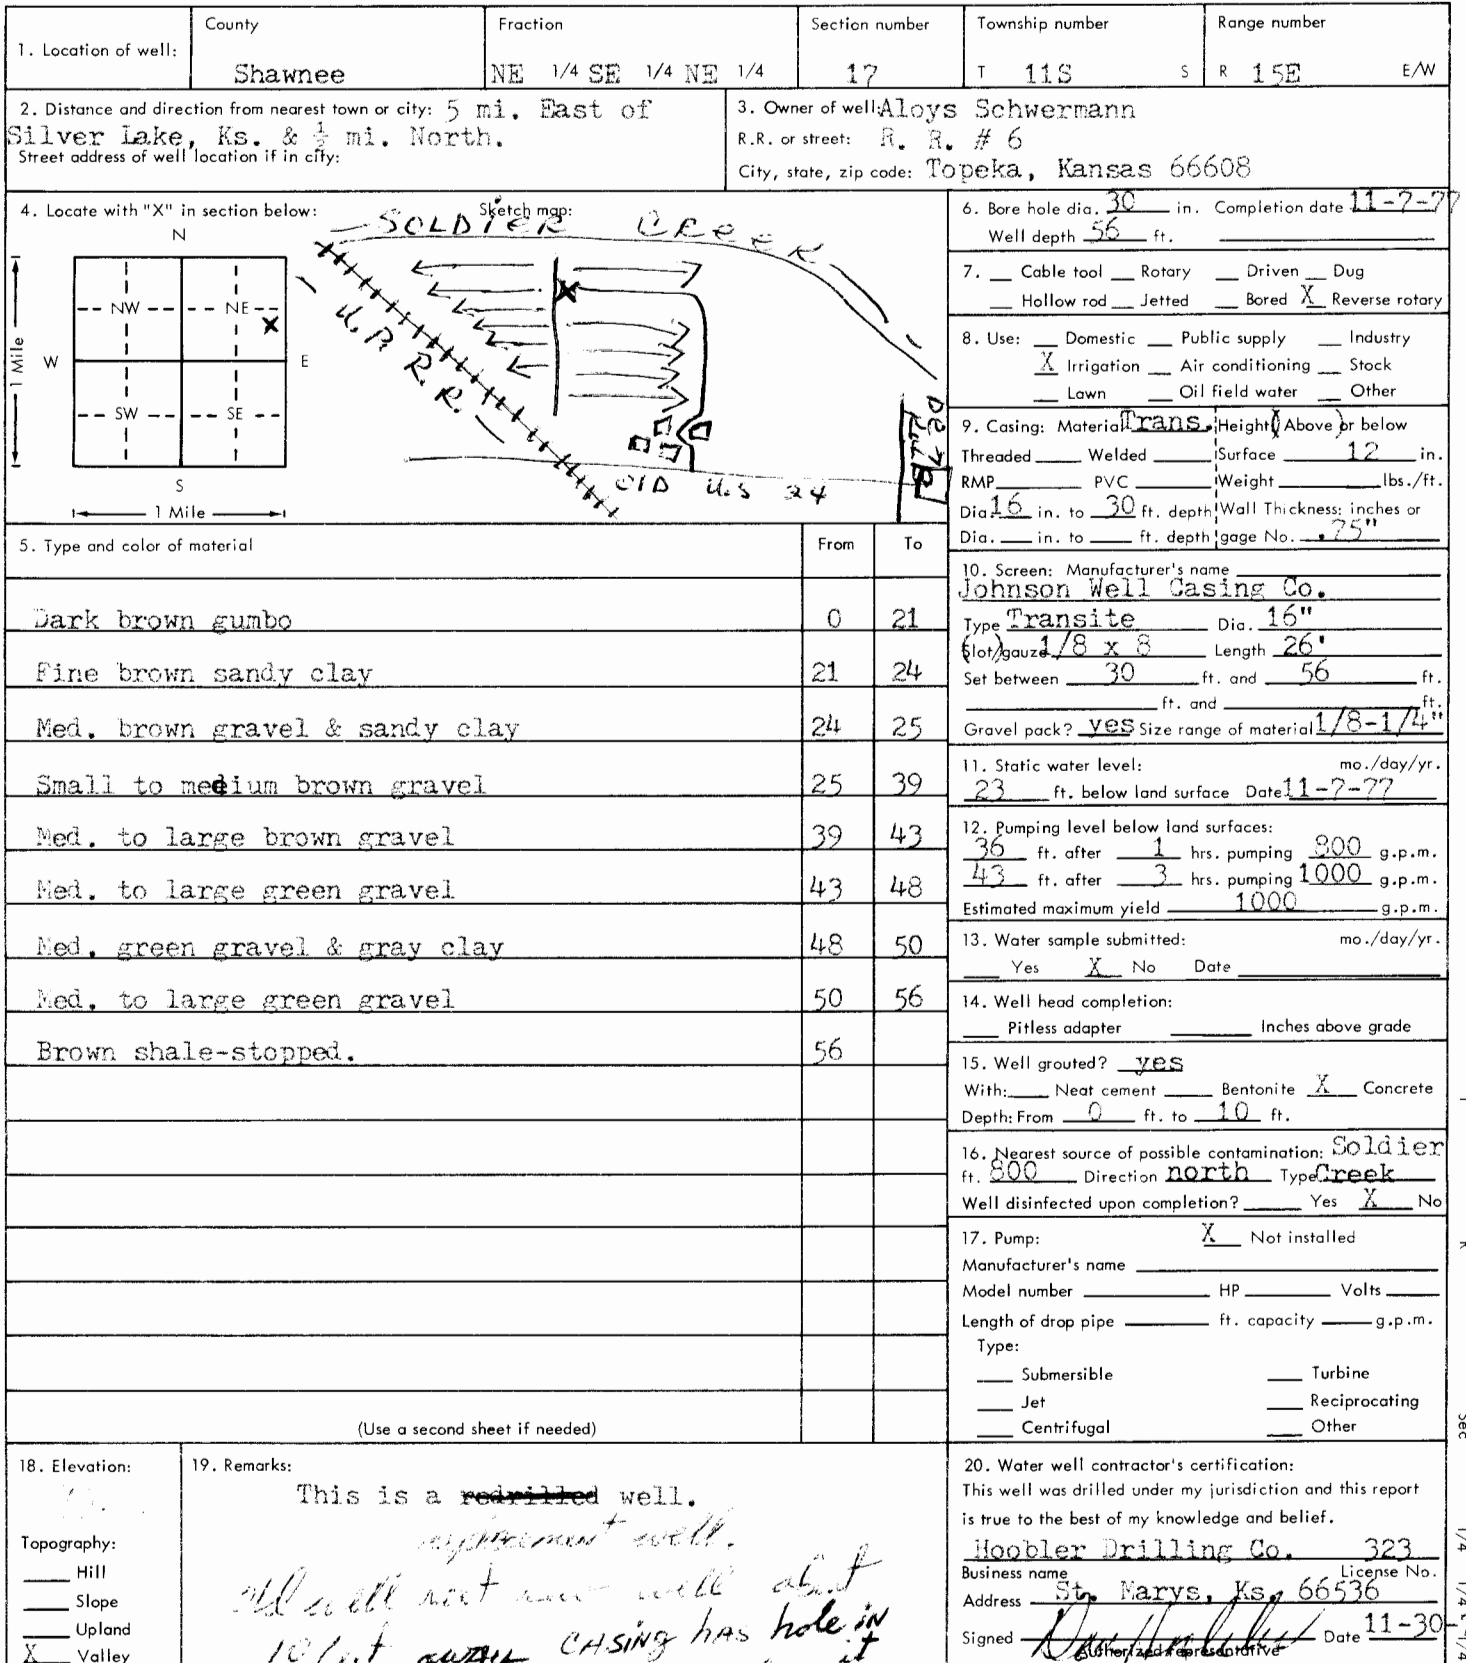 County Fraction Section number Township number Range number
1. Location of well:
Shawnee NE 1/4 SE 1/4 NE 1/4 17 T 11S S R 15E E/W
2. Distance and direction from nearest town or city: 5 mi. East of
Silver Lake, Ks. & ½ mi. North.
Street address of well location if in city:
3. Owner of well: Aloys Schwermann
R.R. or street: R. R. # 6
City, state, zip code: Topeka, Kansas 66608
4. Locate with "X" in section below: Sketch map:
N
NW NE
X
W E
SW SE
S
1 Mile
1 Mile
SOLDIER CREEK
X
U.P. R.R.
Old U.S 24
5. Type and color of material From To
Dark brown gumbo 0 21
Fine brown sandy clay 21 24
Med. brown gravel & sandy clay 24 25
Small to medium brown gravel 25 39
Med. to large brown gravel 39 43
Med. to large green gravel 43 48
Med. green gravel & gray clay 48 50
Med. to large green gravel 50 56
Brown shale-stopped. 56
(Use a second sheet if needed)
6. Bore hole dia. 30 in. Completion date 11-7-77
Well depth 56 ft.
7. Cable tool Rotary Driven Dug
Hollow rod Jetted Bored X Reverse rotary
8. Use: Domestic Public supply Industry
X Irrigation Air conditioning Stock
Lawn Oil field water Other
9. Casing: Material Trans. Height (Above) or below
Threaded Welded Surface 12 in.
RMP PVC Weight lbs./ft.
Dia. 16 in. to 30 ft. depth Wall Thickness: inches or
Dia. in. to ft. depth gage No. .75"
10. Screen: Manufacturer's name
Johnson Well Casing Co.
Type Transite Dia. 16"
(Slot) gauze 1/8 x 8 Length 26'
Set between 30 ft. and 56 ft.
ft. and ft.
Gravel pack? yes Size range of material 1/8-1/4"
11. Static water level: mo./day/yr.
23 ft. below land surface Date 11-7-77
12. Pumping level below land surfaces:
36 ft. after 1 hrs. pumping 800 g.p.m.
43 ft. after 3 hrs. pumping 1000 g.p.m.
Estimated maximum yield 1000 g.p.m.
13. Water sample submitted: mo./day/yr.
Yes X No Date
14. Well head completion:
Pitless adapter Inches above grade
15. Well grouted? yes
With: Neat cement Bentonite X Concrete
Depth: From 0 ft. to 10 ft.
16. Nearest source of possible contamination: Soldier
ft. 800 Direction north Type Creek
Well disinfected upon completion? Yes X No
17. Pump: X Not installed
Manufacturer's name
Model number HP Volts
Length of drop pipe ft. capacity g.p.m.
Type:
Submersible Turbine
Jet Reciprocating
Centrifugal Other
18. Elevation:
Topography:
Hill
Slope
Upland
X Valley
19. Remarks:
This is a redrilled well.
replacement well.
Old well well about
10 feet away CASING has hole in
it
20. Water well contractor's certification:
This well was drilled under my jurisdiction and this report
is true to the best of my knowledge and belief.
Hoobler Drilling Co. 323
Business name License No.
Address St. Marys, Ks. 66536
Signed Date 11-30-
Authorized representative
Sec
1/4 1/4 1/4